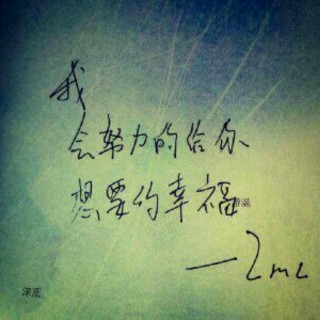 我
会努力的给你
想要的幸福
深度